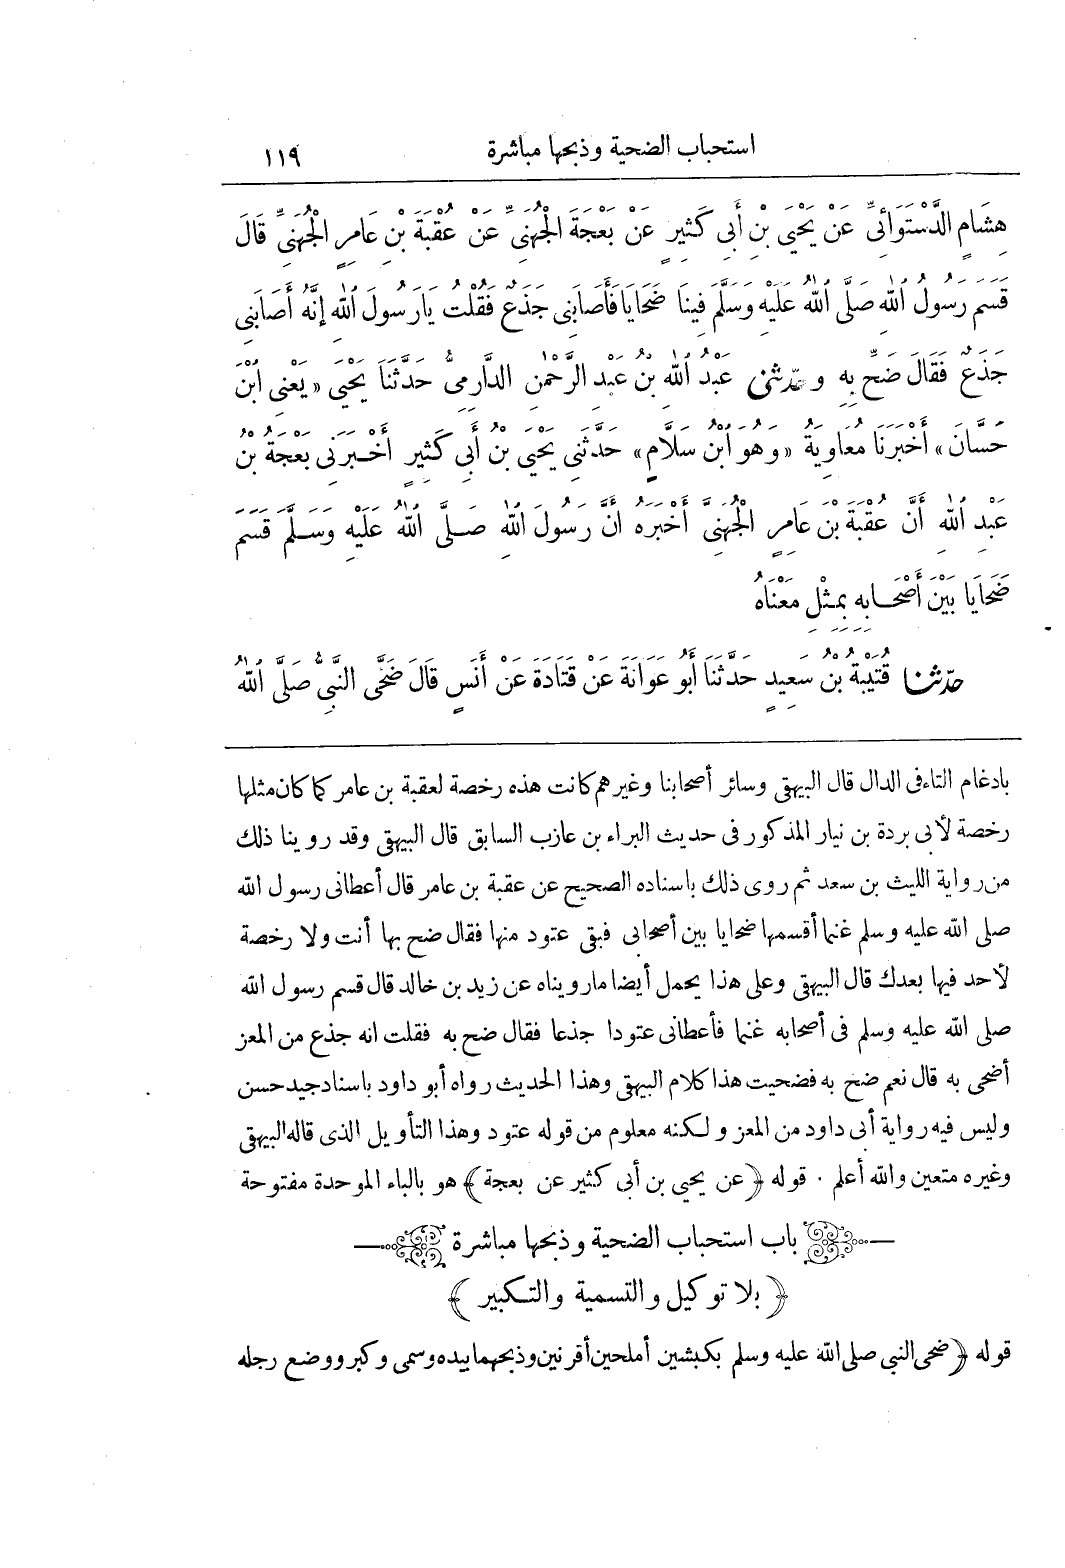 استحباب الضحية وذبحها مباشرة ١١٩
هِشَامٍ الدَّسْتَوَائِيِّ عَنْ يَحْيَى بْنِ أَبِى كَثِيرٍ عَنْ بَعْجَةَ الْجُهَنِيِّ عَنْ عُقْبَةَ بْنِ عَامِرٍ الْجُهَنِيِّ قَالَ
قَسَمَ رَسُولُ اللهِ صَلَّى اللهُ عَلَيْهِ وَسَلَّمَ فِينَا ضَحَايَا فَأَصَابَنِى جَذَعٌ فَقُلْتُ يَارَسُولَ اللهِ إِنَّهُ أَصَابَنِى
جَذَعٌ فَقَالَ ضَحِّ بِهِ وحدّثنى عَبْدُ اللهِ بْنُ عَبْدِ الرَّحْمٰنِ الدَّارِمِىُّ حَدَّثَنَا يَحْيَى «يَعْنِى ابْنَ
حَسَّانَ» أَخْبَرَنَا مُعَاوِيَةُ «وَهُوَ ابْنُ سَلَّامٍ» حَدَّثَنِى يَحْيَى بْنُ أَبِى كَثِيرٍ أَخْبَرَنِى بَعْجَةُ بْنُ
عَبْدِ اللهِ أَنَّ عُقْبَةَ بْنَ عَامِرٍ الْجُهَنِىَّ أَخْبَرَهُ أَنَّ رَسُولَ اللهِ صَلَّى اللهُ عَلَيْهِ وَسَلَّمَ قَسَمَ
ضَحَايَا بَيْنَ أَصْحَابِهِ بِمِثْلِ مَعْنَاهُ
حدّثنا قُتَيْبَةُ بْنُ سَعِيدٍ حَدَّثَنَا أَبُو عَوَانَةَ عَنْ قَتَادَةَ عَنْ أَنَسٍ قَالَ ضَحَّى النَّبِىُّ صَلَّى اللهُ
بادغام التاء فى الدال قال البيهقى وسائر أصحابنا وغيرهم كانت هذه رخصة لعقبة بن عامر كما كان مثلها
رخصة لأبى بردة بن نيار المذكور فى حديث البراء بن عازب السابق قال البيهقى وقد روينا ذلك
من رواية الليث بن سعد ثم روى ذلك باسناده الصحيح عن عقبة بن عامر قال أعطانى رسول الله
صلى الله عليه وسلم غنما أقسمها ضحايا بين أصحابى فبقى عتود منها فقال ضح بها أنت ولا رخصة
لأحد فيها بعدك قال البيهقى وعلى هذا يحمل أيضا مارويناه عن زيد بن خالد قال قسم رسول الله
صلى الله عليه وسلم فى أصحابه غنما فأعطانى عتودا جذعا فقال ضح به فقلت انه جذع من المعز
أضحى به قال نعم ضح به فضحيت هذا كلام البيهقى وهذا الحديث رواه أبو داود باسناد جيد حسن
وليس فيه رواية أبى داود من المعز ولكنه معلوم من قوله عتود وهذا التأويل الذى قاله البيهقى
وغيره متعين والله أعلم . قوله ﴿عن يحيى بن أبى كثير عن بعجة﴾ هو بالباء الموحدة مفتوحة
باب استحباب الضحية وذبحها مباشرة
﴿ بلا توكيل والتسمية والتكبير ﴾
قوله ﴿ضحى النبى صلى الله عليه وسلم بكبشين أملحين أقرنين وذبحهما بيده وسمى وكبر ووضع رجله